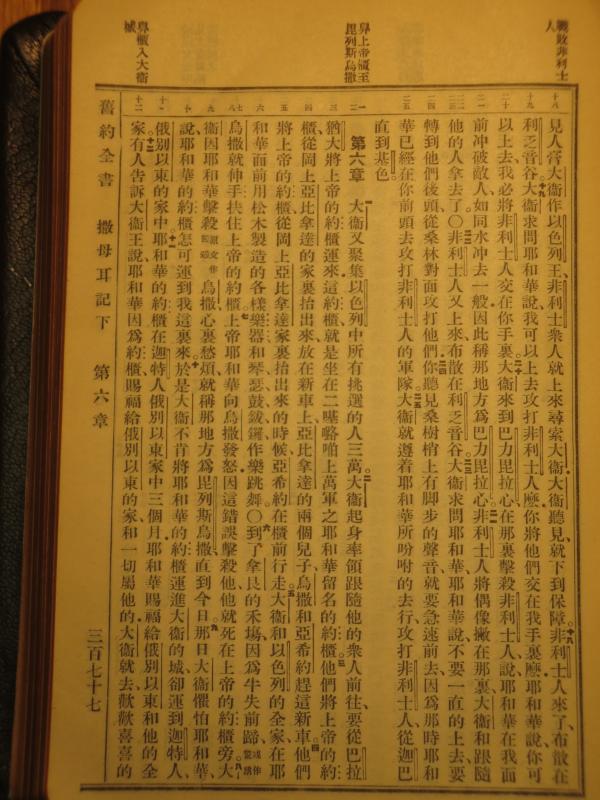 戰敗非利士人
舁上帝櫃至毘列斯烏撒
舁櫃入大衞城
十八 十九 二十 二一 二二 二三 二四 二五 一 二 三 四 五 六 七 八 九 十 十一 十二
見人膏大衞作以色列王、非利士衆人就上來尋索大衞、大衞聽見、就下到保障。十八非利士人來了、布散在
利乏音谷。十九大衞求問耶和華說、我可以上去攻打非利士人麽、你將他們交在我手裏麽、耶和華說、你可
以上去、我必將非利士人交在你手裏。二十大衞來到巴力毘拉心、在那裏擊殺非利士人、說、耶和華在我面
前冲破敵人、如同水冲去一般、因此稱那地方爲巴力毘拉心。二一非利士人將偶像撇在那裏、大衞和跟隨
他的人拿去了。○二二非利士人又上來、布散在利乏音谷。二三大衞求問耶和華、耶和華說、不要一直的上去、要
轉到他們後頭、從桑林對面攻打他們。二四你聽見桑樹梢上有脚步的聲音、就要急速前去、因爲那時耶和
華已經在你前頭去攻打非利士人的軍隊。二五大衞就遵着耶和華所吩咐的去行、攻打非利士人、從迦巴
直到基色
第六章 一大衞又聚集以色列中所有挑選的人三萬。二大衞起身、率領跟隨他的衆人前往、要從巴拉
猶大將上帝的約櫃運來、這約櫃就是坐在二𠼻𡀔啪上萬軍之耶和華留名的約櫃。三他們將上帝的約
櫃從岡上亞比拿達的家裏抬出來、放在新車上、亞比拿達的兩個兒子烏撒和亞希約趕這新車。四他們
將上帝的約櫃從岡上亞比拿達家裏抬出來的時候、亞希約在櫃前行走。五大衞和以色列的全家在耶
和華面前、用松木製造的各樣樂器和琴瑟鼓鈸鑼作樂跳舞。○六到了拿艮的禾場、因爲牛失前蹄、
烏撒就伸手扶住上帝的約櫃。七上帝耶和華向烏撒發怒、因這錯誤擊殺他、他就死在上帝的約櫃旁。八大
衞因耶和華擊殺烏撒、心裏愁煩、就稱那地方爲毘列斯烏撒、直到今日。九那日大衞懼怕耶和華、
說、耶和華的約櫃怎可運到我這裏來。十於是大衞不肯將耶和華的約櫃運進大衞的城、卻運到迦特人
俄別以東的家中。十一耶和華的約櫃在迦特人俄別以東家中三個月、耶和華賜福給俄別以東和他的全
家。十二有人告訴大衞王說、耶和華因爲約櫃賜福給俄別以東的家和一切屬他的、大衞就去、歡歡喜喜的
舊約全書 撒母耳記下 第六章 三百七十七